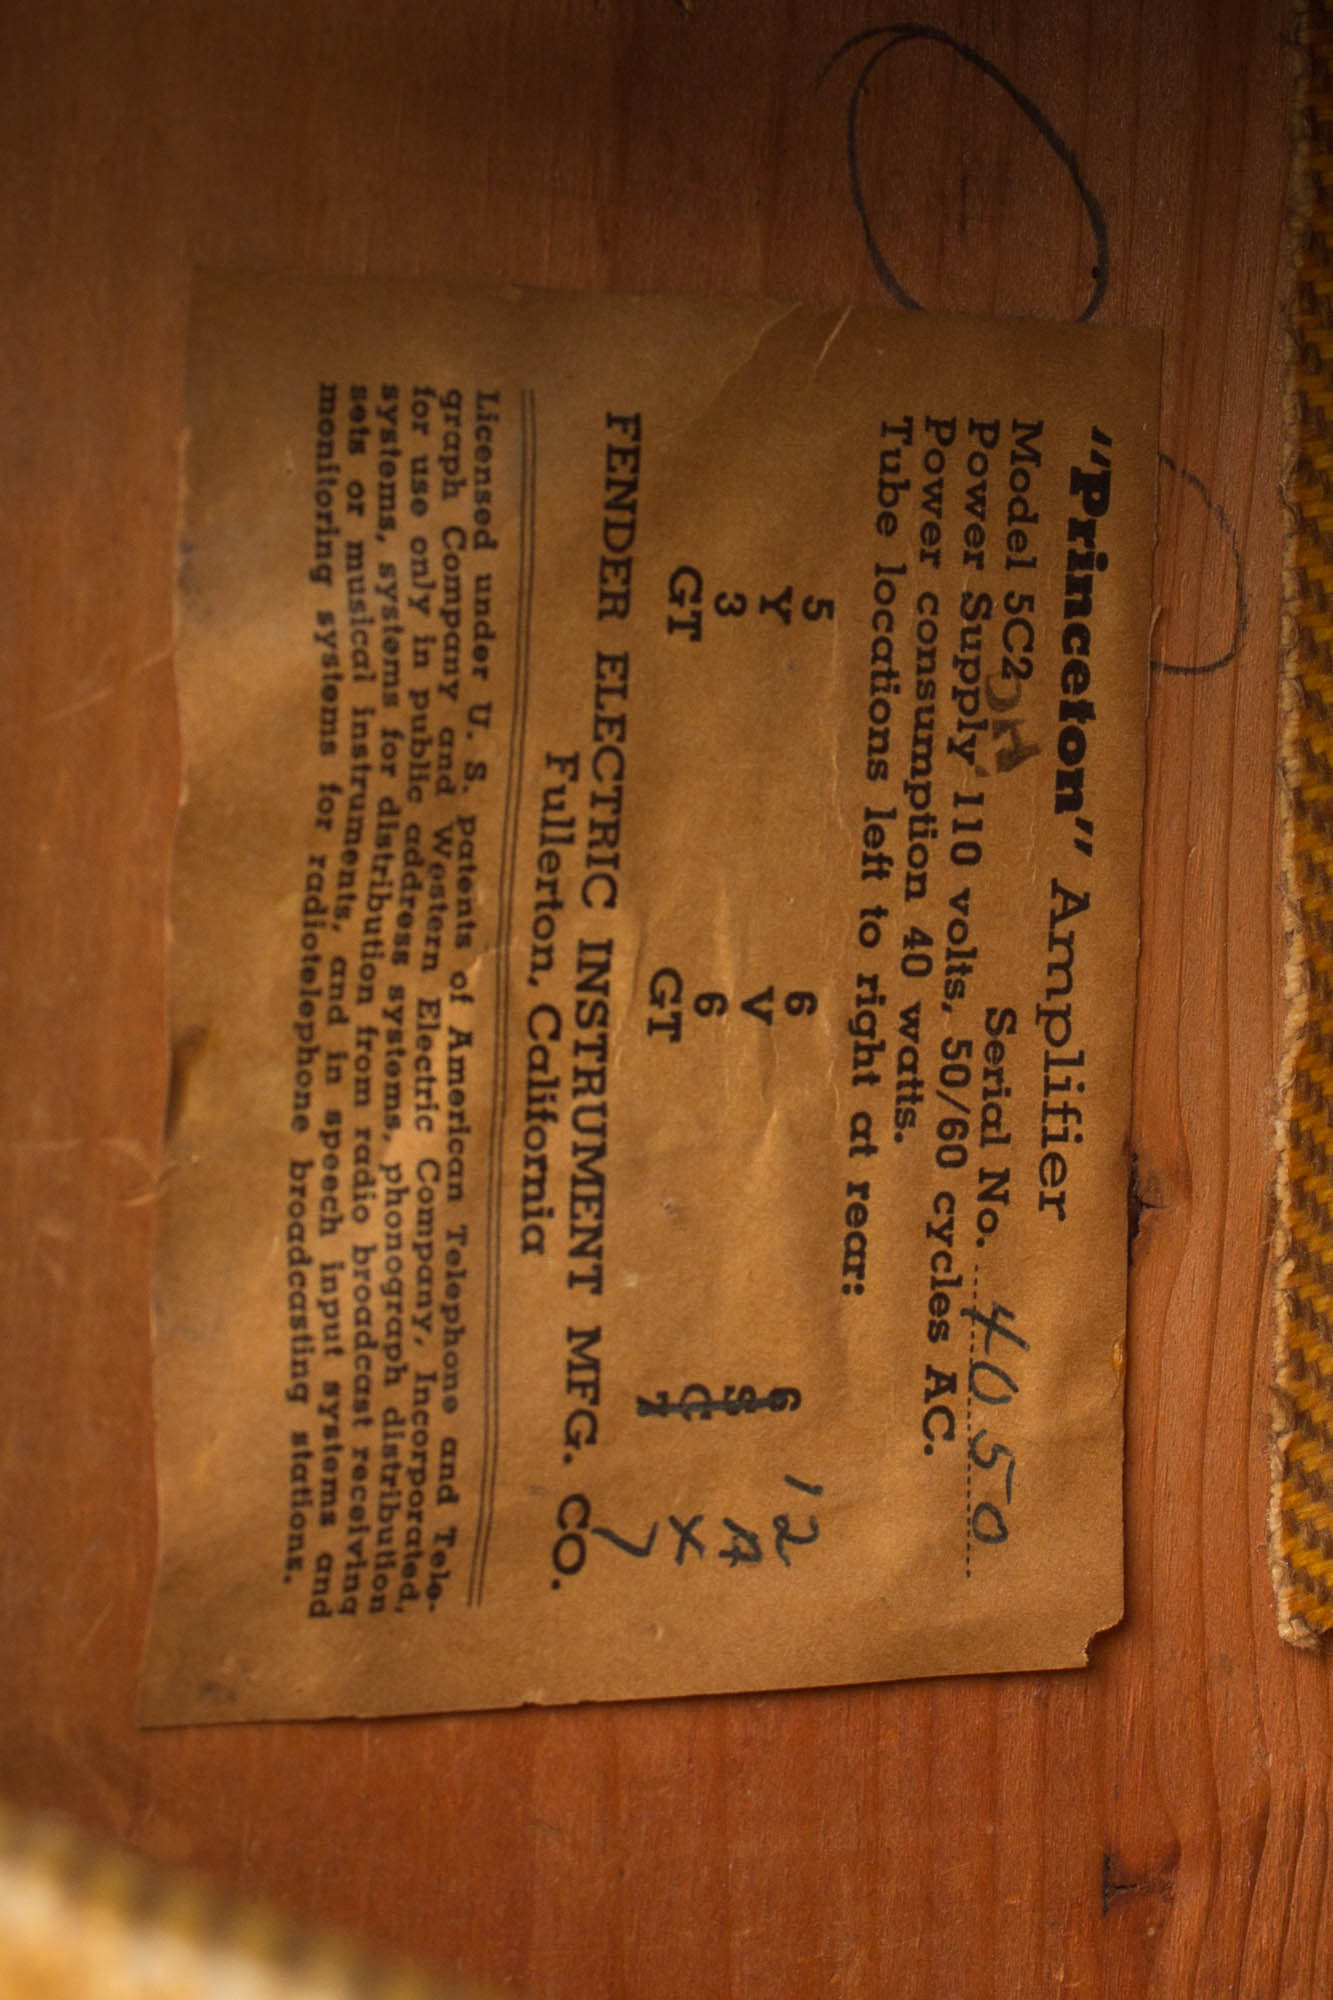 "Princeton" Amplifier
Model 5C2 DH Serial No. 4050
Power Supply 110 volts, 50/60 cycles AC.
Power consumption 40 watts.
Tube locations left to right at rear:
5 6 6 12
Y V S A
3 6 C X
GT GT 7 7
FENDER ELECTRIC INSTRUMENT MFG. CO.
Fullerton, California
Licensed under U. S. patents of American Telephone and Tele-
graph Company and Western Electric Company, Incorporated,
for use only in public address systems, phonograph distribution
systems, systems for distribution from radio broadcast receiving
sets or musical instruments, and in speech input systems and
monitoring systems for radiotelephone broadcasting stations.